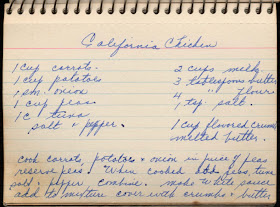 California Chicken
1 cup carrots.
1 cup potatoes
1 sm. onion
1 cup peas.
1 c tuna
salt & pepper.
2 cups milk
3 tablespoons butter
4 " flour
1 tsp salt.
1 cup flavored crumbs
melted butter.
cook carrots, potatoes & onion in juice of peas
reserve peas. When cooked add peas, tuna
salt & pepper combine. make white sauce
add to mixture cover with crumbs & butter